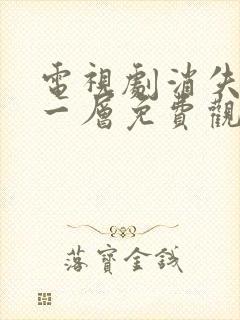 電視劇消失
一層免費觀
落寶金錢